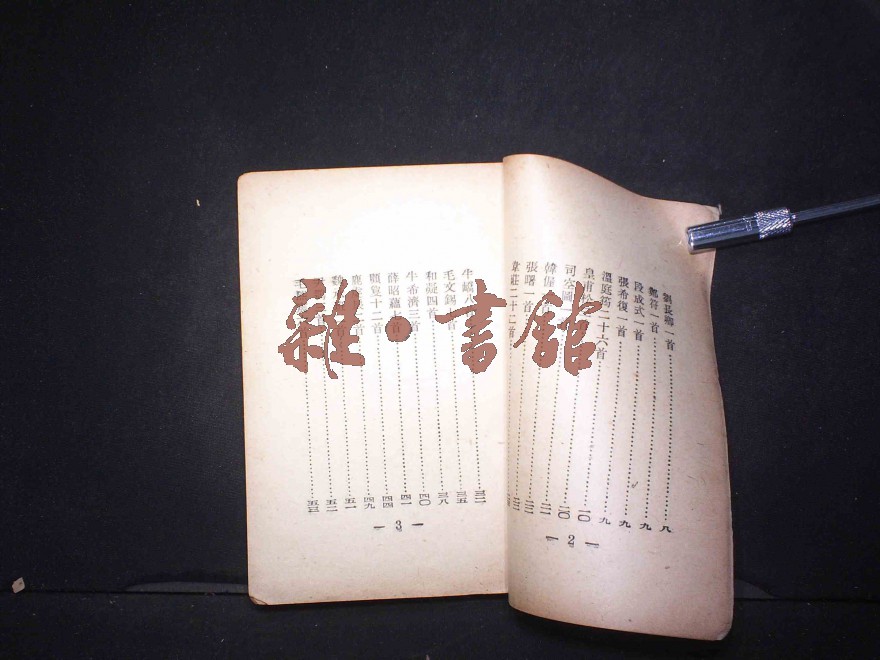 劉長卿一首……八
鄭符一首……九
段成式一首……九
張希復一首……九
溫庭筠二十六首……九
皇甫……一〇
司空圖一……一〇
韓偓……一一
張曙一首……一二
韋莊二十二首……一三
— 2 —
牛嶠八……三二
毛文錫一首……三五
和凝四首……三八
牛希濟三首……四〇
薛昭蘊七首……四一
顧敻十二首……四四
鹿虔扆一首……四九
魏……五一
首……五二
毛……五三
— 3 —
雜·書館